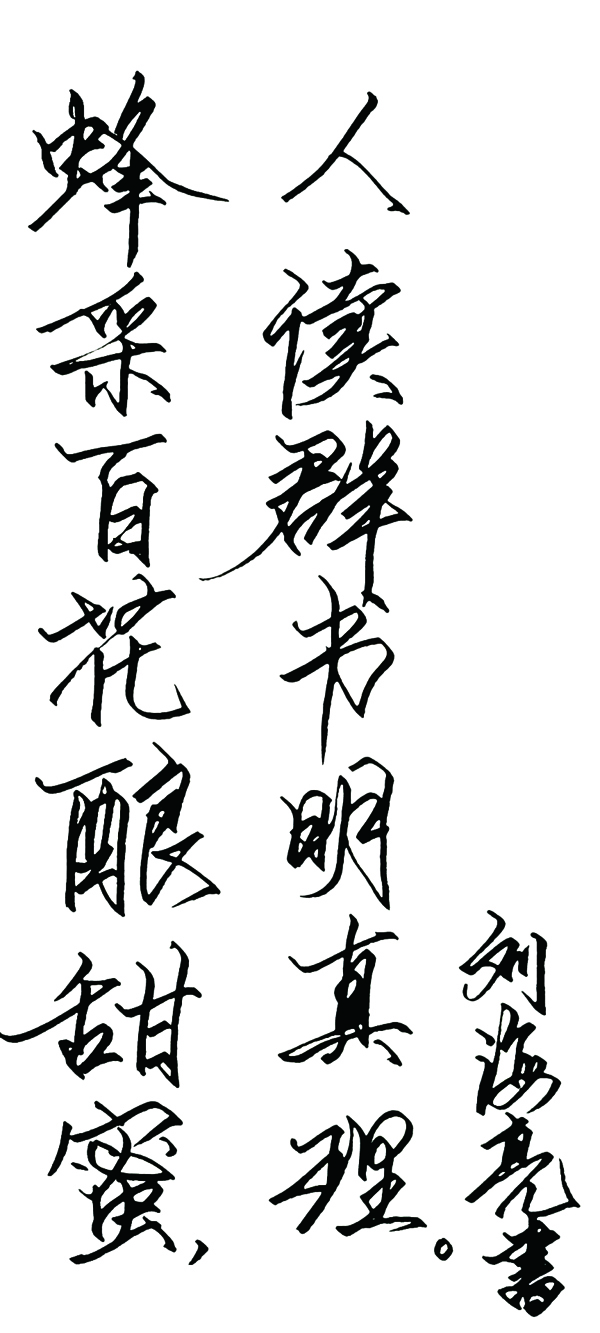 蜂采百花酿甜蜜,
人读群书明真理。
刘海亮書